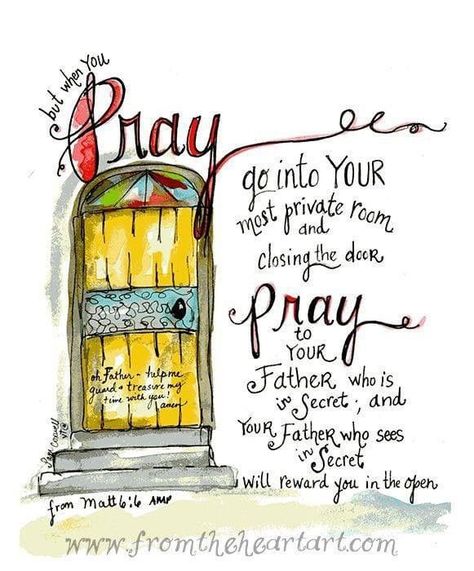 but when YOU
Pray
go into YOUR
most private room
and
closing the door
pray
to
YOUR
Father who is
in Secret; and
YOUR Father who sees
in Secret
will reward you in the open
oh Father - help me
guard & treasure my
time with you!
amen
from Matt 6:6 AMP
www.fromtheheartart.com